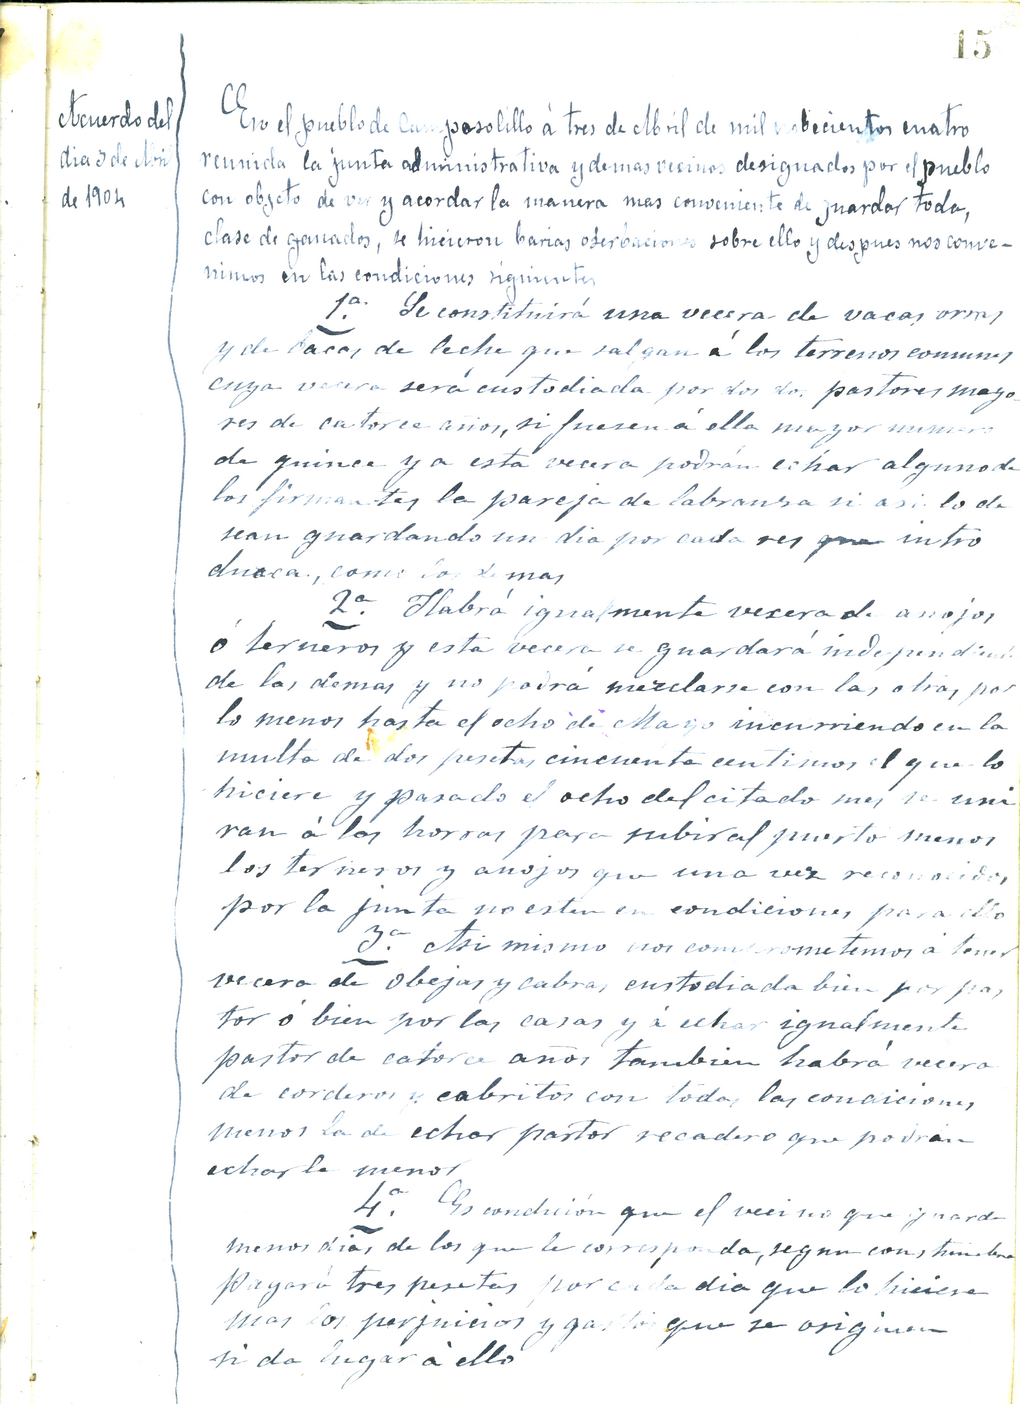 15
Acuerdo del
dia 3 de Abril
de 1904
En el pueblo de Camposolillo á tres de Abril de mil nobecientos cuatro
reunida la junta administrativa y demas vecinos designados por el pueblo
con objeto de ver y acordar la manera mas conveniente de guardar toda,
clase de ganados, se hicieron barias oserbaciones sobre ello y despues nos conve-
nimos en las condiciones siguientes
1ª. Se constituirá una vecera de vacas orras
y de bacas de leche que salgan á los terrenos comunes
cuya vecera será custodiada por dos dos pastores mayo
res de catorce años, si fuesen á ella mayor numero
de quince y a esta vecera podrán echar alguno de
los firmantes la pareja de labranza si asi lo de
sean guardando un dia por cada res que intro
duzca, como los demas
2ª. Habrá igualmente vecera de anojos
ó terneros y esta vecera se guardará independiente
de las demas y no podrá mezclarse con las otras, por
lo menos hasta el ocho de Mayo incurriendo en la
multa de dos pesetas cincuenta centimos el que lo
hiciere y pasado el ocho del citado mes se uni
ran á las horras para subir al puerto menos
los terneros y anojos que una vez reconocidos
por la junta no esten en condiciones para ello
3ª. Asi mismo nos comprometemos á tener
vecera de obejas y cabras, custodiada bien por pas
tor ó bien por las casas y á echar igualmente
pastor de catorce años tambien habrá vecera
de corderos y cabritos con todas las condiciones
menos la de echar pastor recadero que podrán
echarle menor
4ª. Es condición que el vecino que guarde
menos dias, de los que le corresponda, segun constumbre
pagará tres pesetas por cada dia que lo hiciese
mas los perjuicios y gastos que se originen
si da lugar á ello